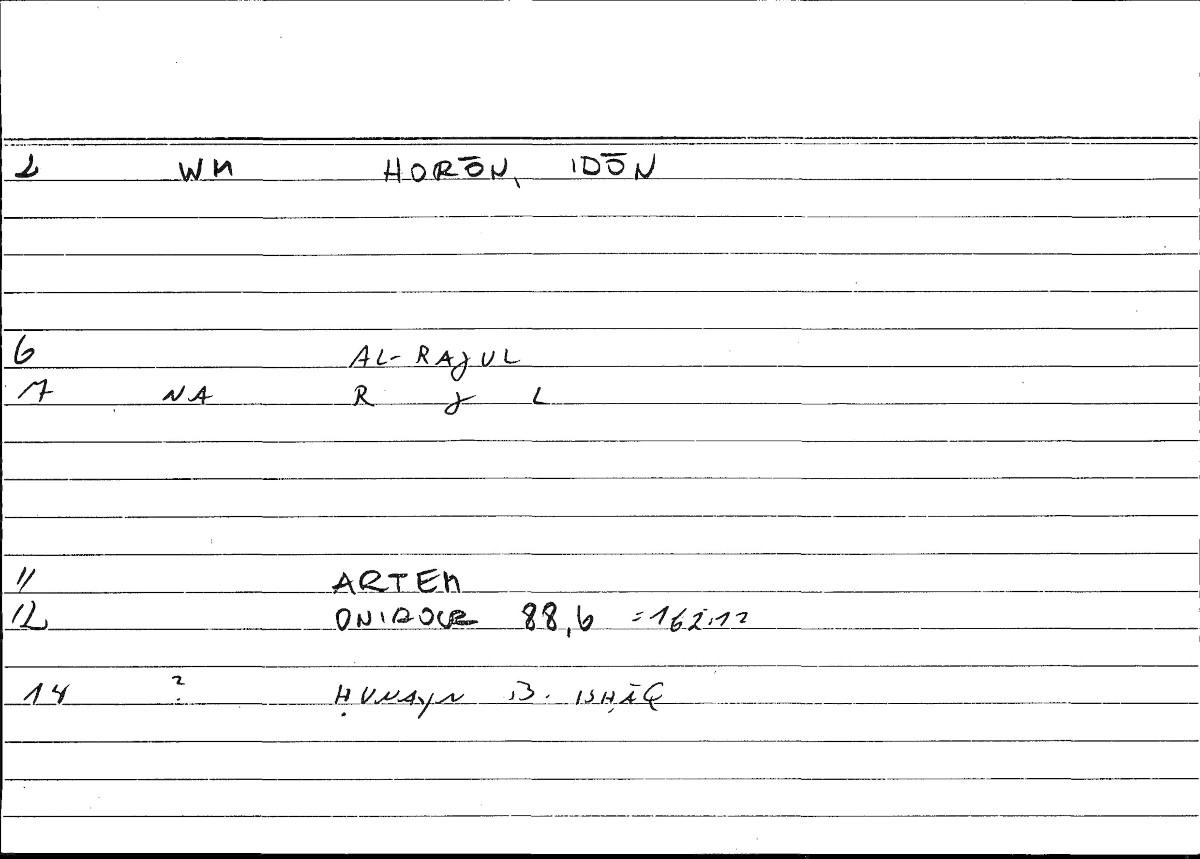 2 WM HORŌN, IDŌN
6 AL-RAJUL
7 NA R J L
11 ARTEM
12 ONIROCR 88,6 =162.12
14 ? ḤUNAYN B. ISḤĀQ